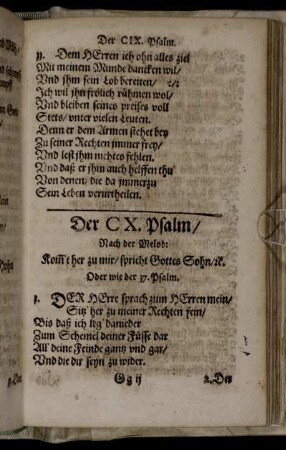 Der CIX. Psalm.
11. Dem HErren ich ohn alles ziel
Mit meinem Munde dancken wil/
Vnd jhm sein Lob bereiten/ :/:
Ich wil jhn frölich rühmen wol/
Vnd bleiben seines preises voll
Stets/ vnter vielen Leuten.
Denn er dem Armen stehet bey
Zu seiner Rechten jmmer frey/
Vnd lest jhm nichtes fehlen.
Vnd daß er jhm auch helffen thu
Von denen/ die da jmmerzu
Sein Leben verurtheilen.
Der CX. Psalm/
Nach der Melod:
Kom̃t her zu mir/ spricht Gottes Sohn/ ꝛc.
Oder wie der 37. Psalm.
1. DER HErre sprach zum HErren mein/
Sitz her zu meiner Rechten fein/
Bis daß ich leg' danieder
Zum Schemel deiner Füsse dar
All' deine Feinde gantz vnd gar/
Vnd die dir seyn zu wider.
Gg ij
2. Der